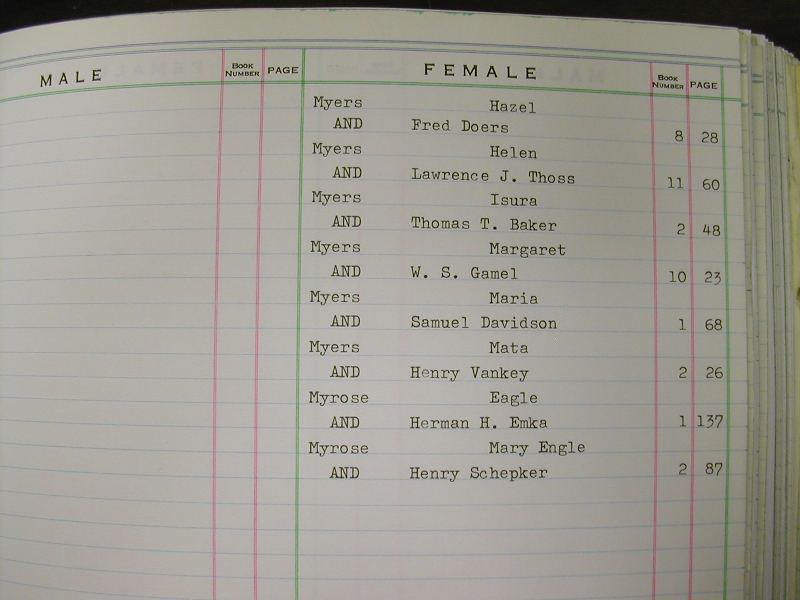 MALE BOOK NUMBER PAGE FEMALE BOOK NUMBER PAGE
Myers Hazel
AND Fred Doers 8 28
Myers Helen
AND Lawrence J. Thoss 11 60
Myers Isura
AND Thomas T. Baker 2 48
Myers Margaret
AND W. S. Gamel 10 23
Myers Maria
AND Samuel Davidson 1 68
Myers Mata
AND Henry Vankey 2 26
Myrose Eagle
AND Herman H. Emka 1 137
Myrose Mary Engle
AND Henry Schepker 2 87